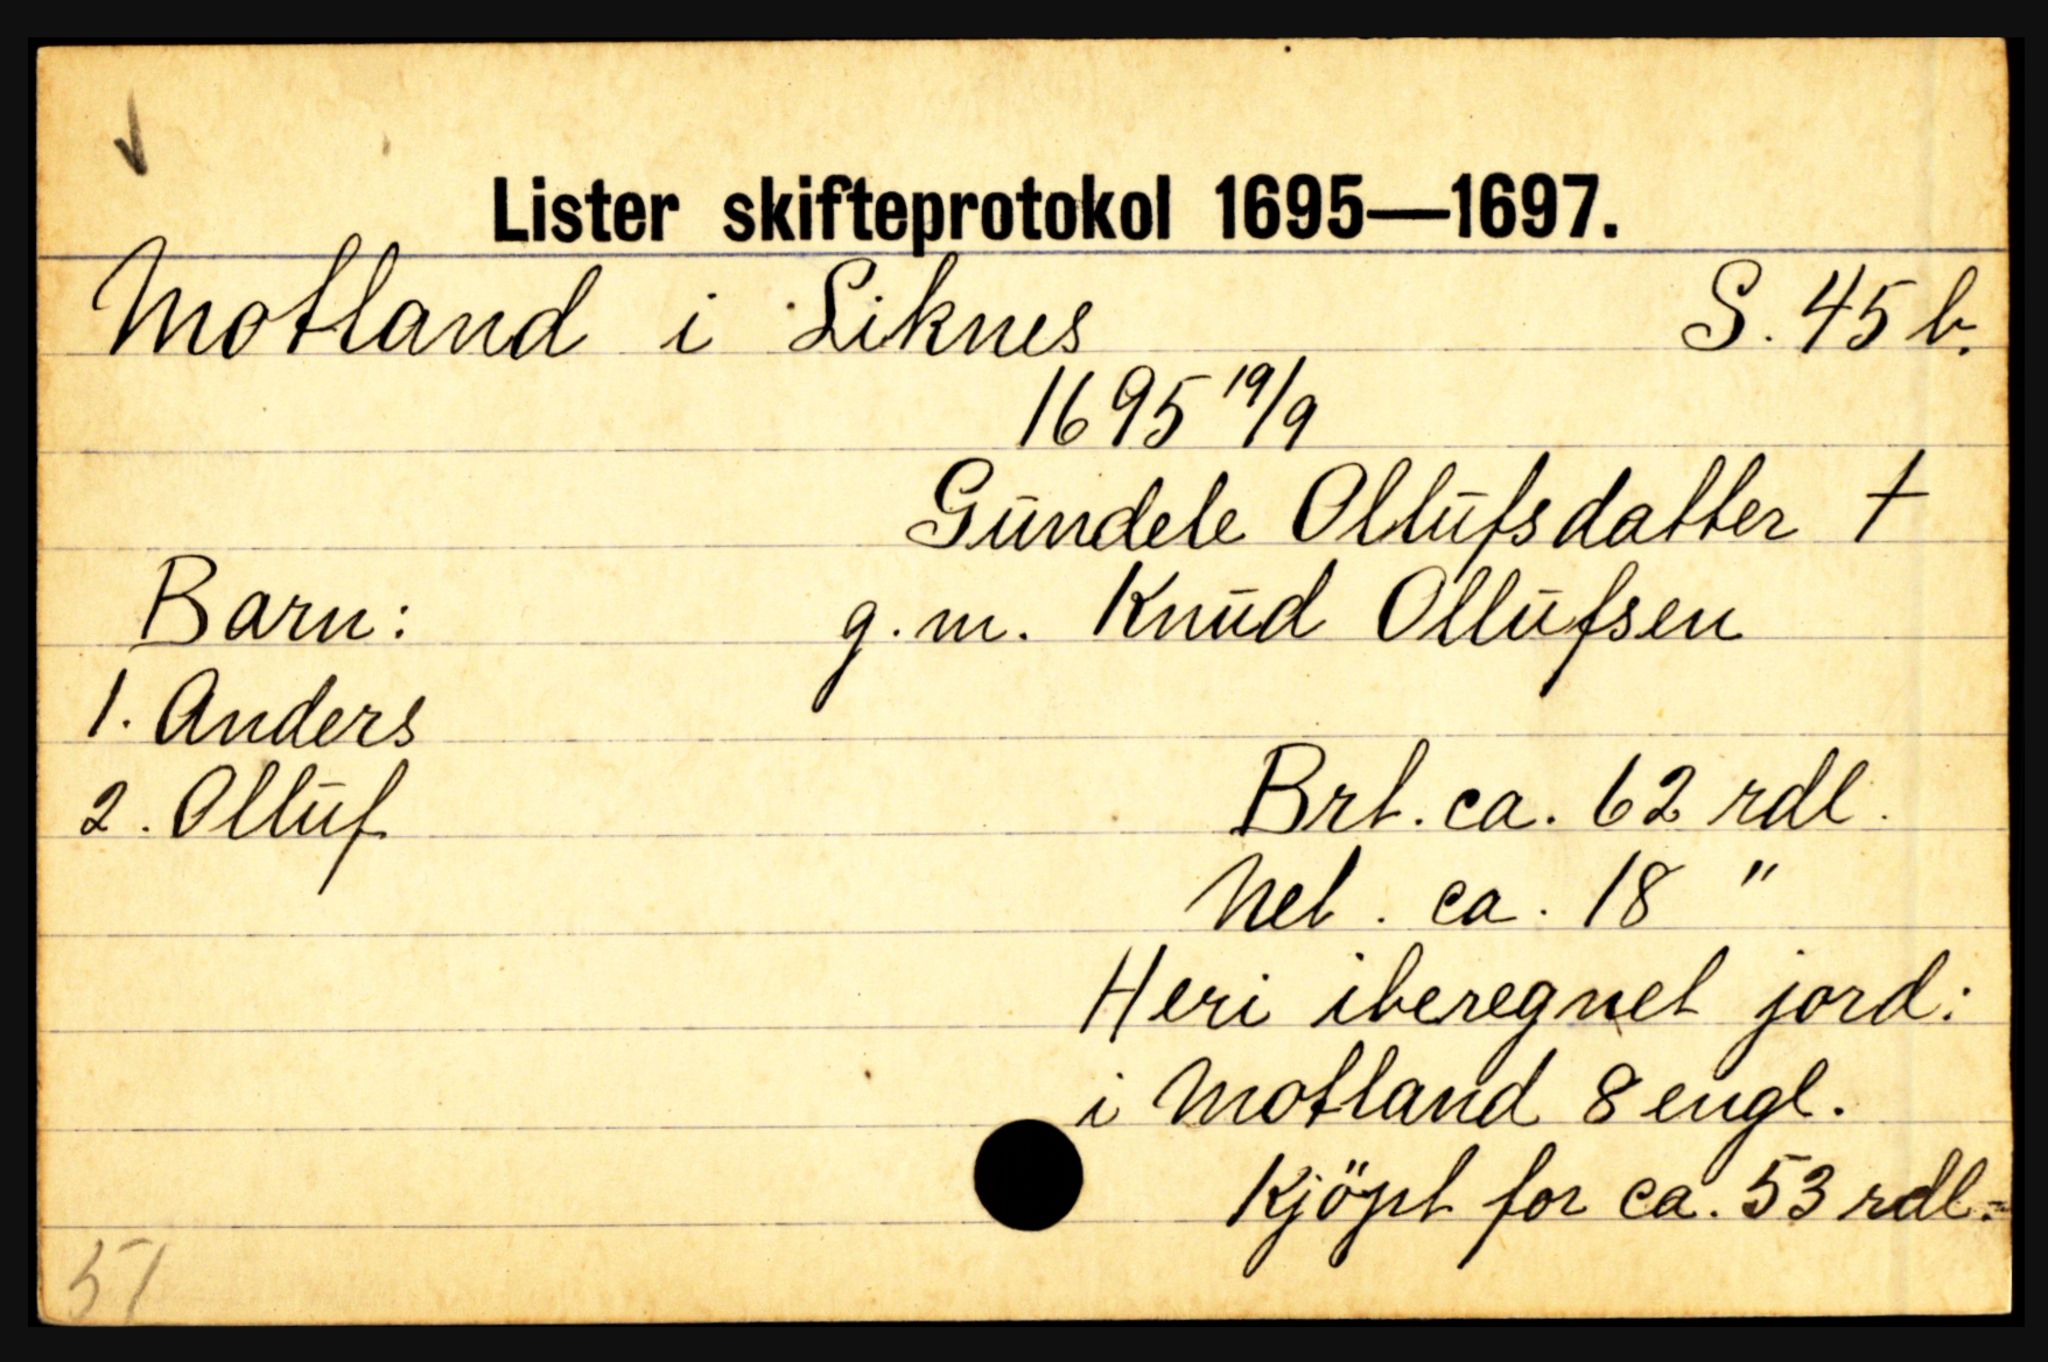 Lister skifteprotokol 1695—1697.
Motland i Liknes S. 45 b.
1695 19/9
Gundele Ollufsdatter †
Barn: g.m. Knud Ollufsen
1. Anders
2. Olluf Brt. ca. 62 rdl.
Net. ca. 18 "
Heri iberegnet jord:
i Motland 8 engl.
Kjöpt for ca. 53 rdl.
51